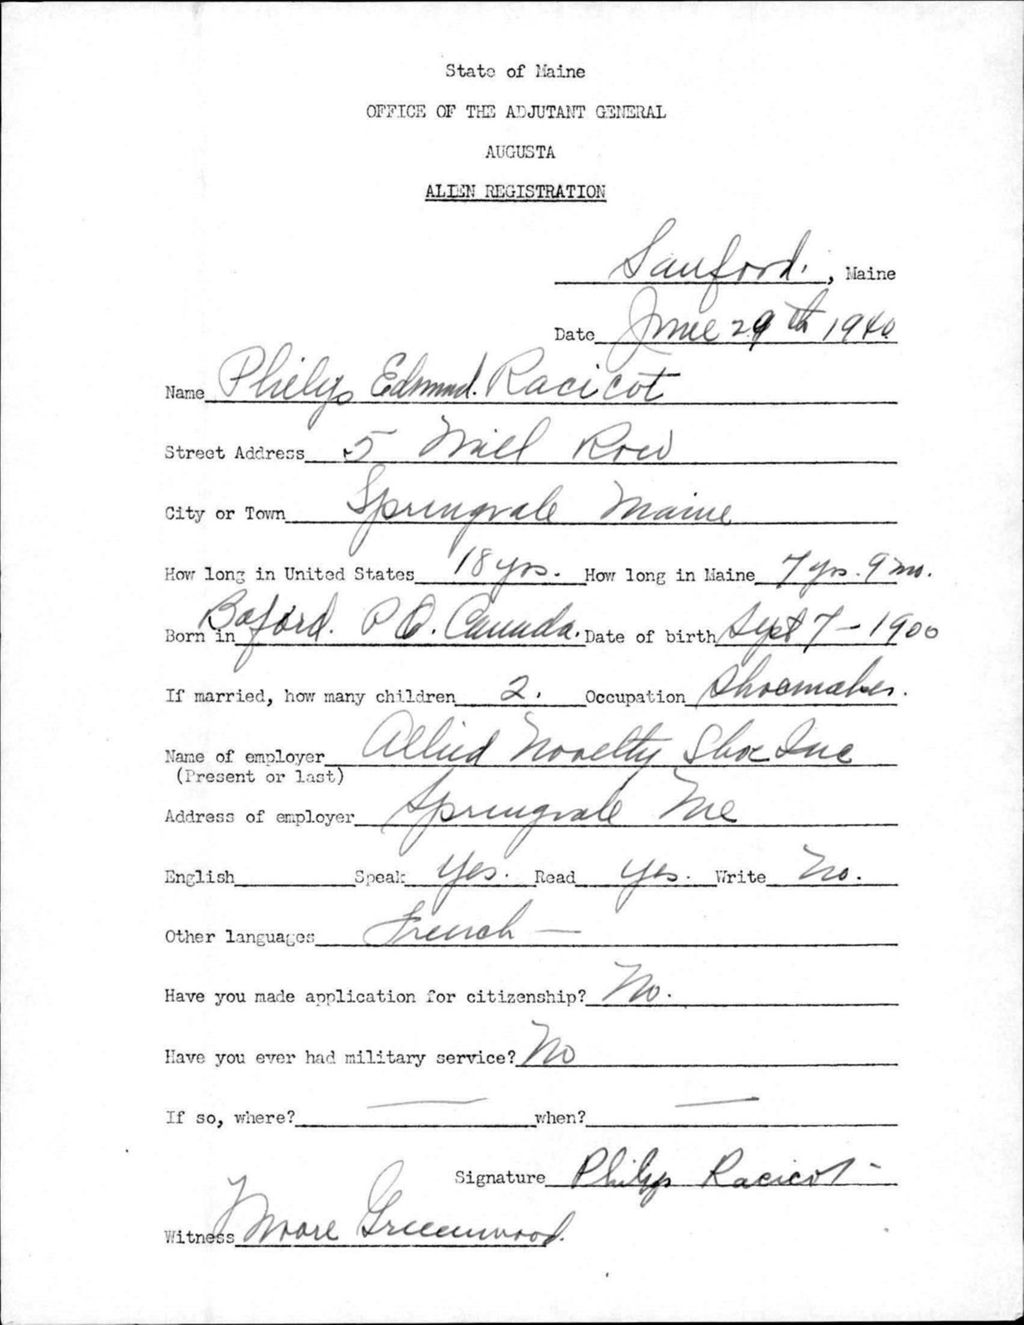 State of Maine
OFFICE OF THE ADJUTANT GENERAL
AUGUSTA
ALIEN REGISTRATION
Sanford, Maine
Date June 29th 1940
Name Philys Edmund. Racicot
Street Address 5 Mill Row
City or Town Springvale Maine
How long in United States 18 yrs. How long in Maine 7 yrs. 9 mo.
Born in Boford. P Q. Canada. Date of birth Sept 7 - 1900
If married, how many children 2. Occupation Shoemaker.
Name of employer Allied Novelty Shoe Inc
(Present or last)
Address of employer Springvale Me
English Speak Yes. Read yes. Write No.
Other languages French —
Have you made application for citizenship? No.
Have you ever had military service? No
If so, where? — when? —
Signature Philyp Racicot -
Witness Moore Greenwood.